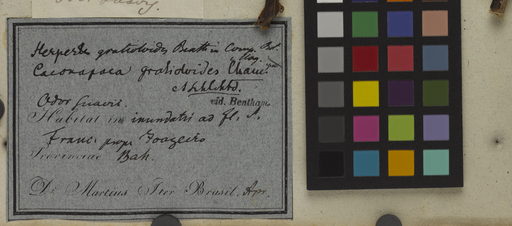 Herpestis gratioloides Benth in Comp. Bot.
Mag.
Caconapea gratioloides Cham.
& Schlchtd.
vid. Bentham.
Odor suavis.
Habitat in inundatis ad fl. S.
Franc. prope Joazeiro
Provinciae Bah.
Dr. Martius Iter Brasil. Apr.